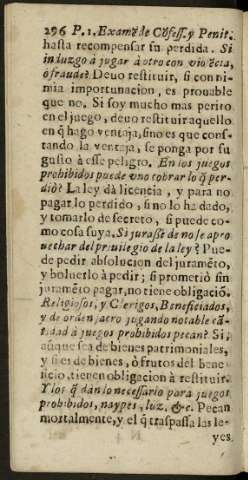 296 P. 1. Examẽ de Cõfess. y Penit.
hasta recompensar su perdida. Si
induzgo à jugar à otro con violẽcia,
ò fraude? Deuo restituir, si con ni-
mia importunacion, es prouable
que no. Si soy mucho mas perito
en el juego, deuo restituir aquello
en q̃ hago ventaja, sino es que cons-
tando la ventaja, se ponga por su
gusto à esse peligro. En los juegos
prohibidos puede vno cobrar lo q̃ per-
diò? La ley dà licencia, y para no
pagar lo perdido, si no lo ha dado,
y tomarlo de secreto, si puede co-
mo cosa suya. Si jurasse de no se apro
uechar del priuilegio de la ley? Pue-
de pedir absolucion del juramẽto,
y boluerlo à pedir; si prometiò sin
juramẽto pagar, no tiene obligaciõ.
Religiosos, y Clerigos, Beneficiados,
y de orden sacro jugando notable cã-
tidad à juegos prohibidos pecan? Si,
aũque sea de bienes patrimoniales,
y si es de bienes, ò frutos del bene
ficio, tienen obligacion à restituir.
Y los q̃ dàn lo necessario para juegos
prohibidos, naypes, luz, &c. Pecan
mortalmente, y el q̃ traspassa las le-
yes